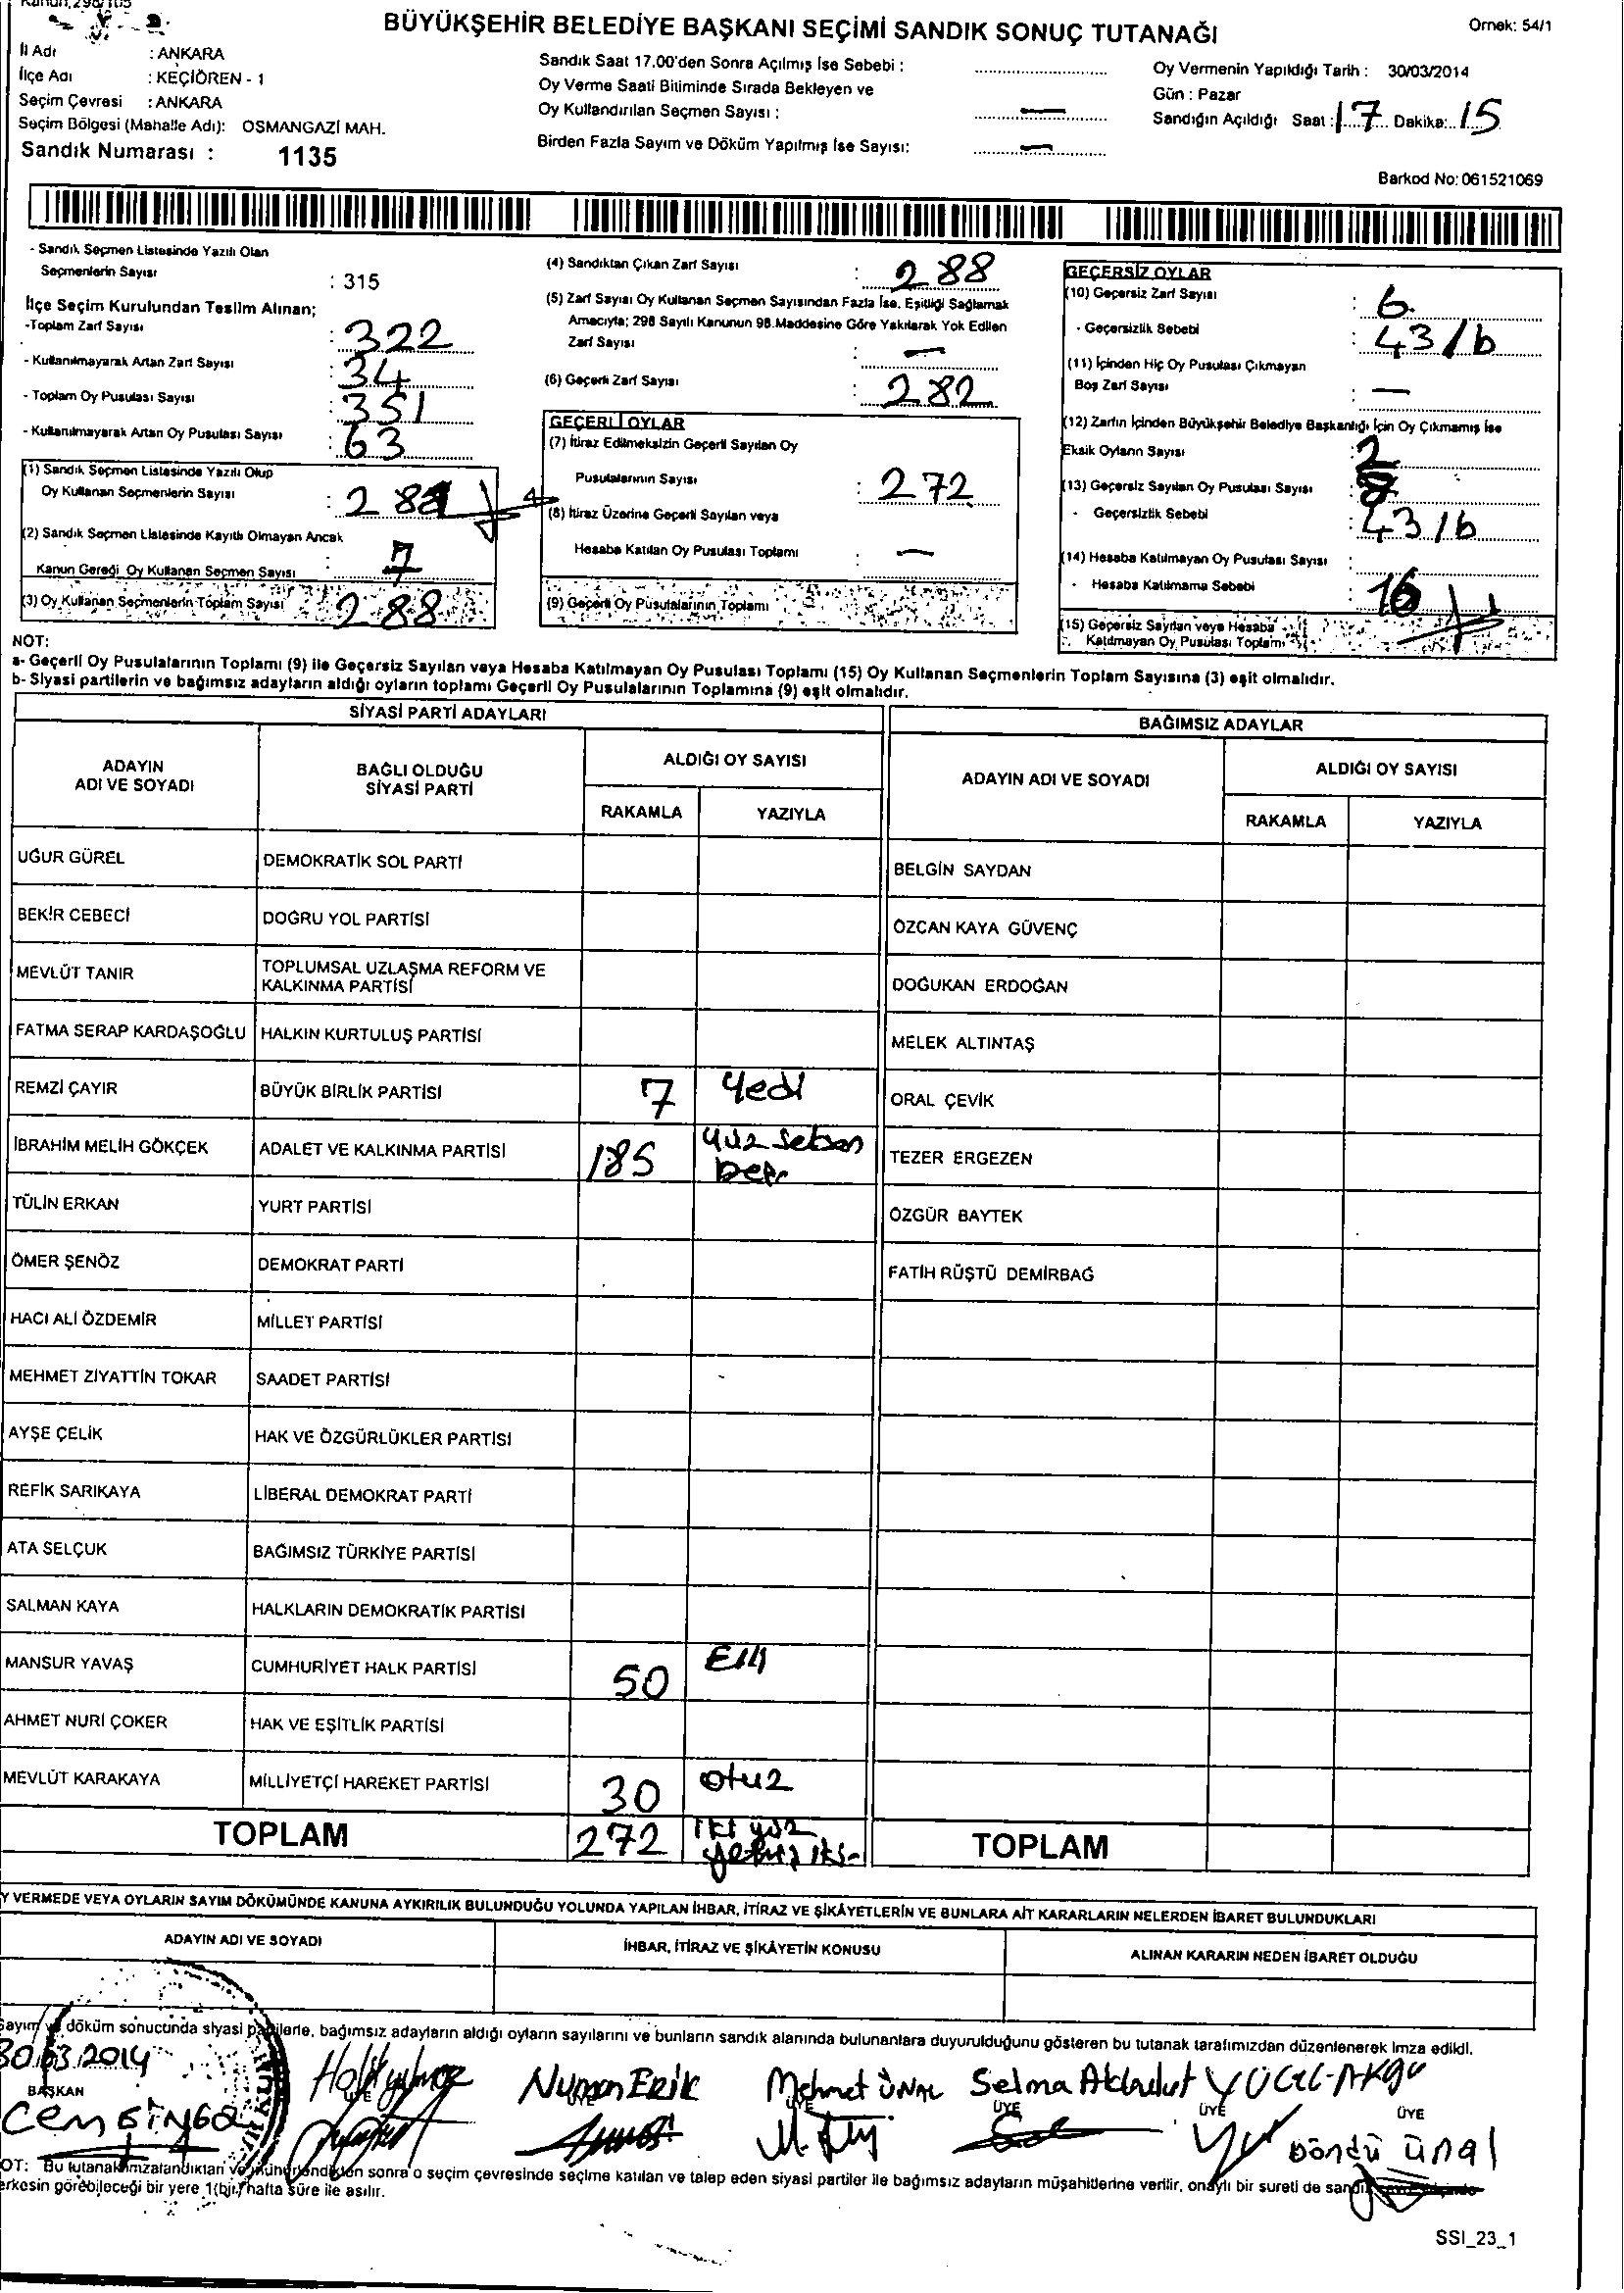 Kanun,298/105
BÜYÜKŞEHİR BELEDİYE BAŞKANI SEÇİMİ SANDIK SONUÇ TUTANAĞI
Örnek: 54/1
İl Adı : ANKARA
İlçe Adı : KEÇİÖREN - 1
Seçim Çevresi : ANKARA
Seçim Bölgesi (Mahalle Adı): OSMANGAZİ MAH.
Sandık Numarası : 1135
Sandık Saat 17.00'den Sonra Açılmış İse Sebebi :
Oy Verme Saati Bitiminde Sırada Bekleyen ve
Oy Kullandırılan Seçmen Sayısı : —
Birden Fazla Sayım ve Döküm Yapılmış İse Sayısı: —
Oy Vermenin Yapıldığı Tarih : 30/03/2014
Gün : Pazar
Sandığın Açıldığı Saat : 17 Dakika: 15
Barkod No: 061521069
- Sandık Seçmen Listesinde Yazılı Olan
Seçmenlerin Sayısı : 315
İlçe Seçim Kurulundan Teslim Alınan;
-Toplam Zarf Sayısı : 322
- Kullanılmayarak Artan Zarf Sayısı : 34
- Toplam Oy Pusulası Sayısı : 351
- Kullanılmayarak Artan Oy Pusulası Sayısı : 63
(1) Sandık Seçmen Listesinde Yazılı Olup
Oy Kullanan Seçmenlerin Sayısı :
(2) Sandık Seçmen Listesinde Kayıtlı Olmayan Ancak
Kanun Gereği Oy Kullanan Seçmen Sayısı : 7
(3) Oy Kullanan Seçmenlerin Toplam Sayısı : 288
(4) Sandıktan Çıkan Zarf Sayısı : 288
(5) Zarf Sayısı Oy Kullanan Seçmen Sayısından Fazla İse, Eşitliği Sağlamak
Amacıyla; 298 Sayılı Kanunun 98.Maddesine Göre Yakılarak Yok Edilen
Zarf Sayısı : —
(6) Geçerli Zarf Sayısı : 282
GEÇERLİ OYLAR
(7) İtiraz Edilmeksizin Geçerli Sayılan Oy
Pusulalarının Sayısı : 272
(8) İtiraz Üzerine Geçerli Sayılan veya
Hesaba Katılan Oy Pusulası Toplamı : —
(9) Geçerli Oy Pusulalarının Toplamı :
GEÇERSİZ OYLAR
(10) Geçersiz Zarf Sayısı : 6
- Geçersizlik Sebebi : 43/b
(11) İçinden Hiç Oy Pusulası Çıkmayan
Boş Zarf Sayısı : —
(12) Zarfın İçinden Büyükşehir Belediye Başkanlığı İçin Oy Çıkmamış İse
Eksik Oyların Sayısı : 2
(13) Geçersiz Sayılan Oy Pusulası Sayısı :
- Geçersizlik Sebebi : 43/b
(14) Hesaba Katılmayan Oy Pusulası Sayısı :
- Hesaba Katılmama Sebebi : 16
(15) Geçersiz Sayılan veya Hesaba
Katılmayan Oy Pusulası Toplamı
NOT:
a- Geçerli Oy Pusulalarının Toplamı (9) ile Geçersiz Sayılan veya Hesaba Katılmayan Oy Pusulası Toplamı (15) Oy Kullanan Seçmenlerin Toplam Sayısına (3) eşit olmalıdır.
b- Siyasi partilerin ve bağımsız adayların aldığı oyların toplamı Geçerli Oy Pusulalarının Toplamına (9) eşit olmalıdır.
SİYASİ PARTİ ADAYLARI
BAĞIMSIZ ADAYLAR
ADAYIN ADI VE SOYADI
BAĞLI OLDUĞU SİYASİ PARTİ
ALDIĞI OY SAYISI
RAKAMLA YAZIYLA
ADAYIN ADI VE SOYADI
ALDIĞI OY SAYISI
RAKAMLA YAZIYLA
UĞUR GÜREL DEMOKRATİK SOL PARTİ BELGİN SAYDAN
BEKİR CEBECİ DOĞRU YOL PARTİSİ ÖZCAN KAYA GÜVENÇ
MEVLÜT TANIR TOPLUMSAL UZLAŞMA REFORM VE KALKINMA PARTİSİ DOĞUKAN ERDOĞAN
FATMA SERAP KARDAŞOĞLU HALKIN KURTULUŞ PARTİSİ MELEK ALTINTAŞ
REMZİ ÇAYIR BÜYÜK BİRLİK PARTİSİ 7 Yedi ORAL ÇEVİK
İBRAHİM MELİH GÖKÇEK ADALET VE KALKINMA PARTİSİ 185 yüz seksen beş TEZER ERGEZEN
TÜLİN ERKAN YURT PARTİSİ ÖZGÜR BAYTEK
ÖMER ŞENÖZ DEMOKRAT PARTİ FATİH RÜŞTÜ DEMİRBAĞ
HACI ALİ ÖZDEMİR MİLLET PARTİSİ
MEHMET ZİYATTİN TOKAR SAADET PARTİSİ
AYŞE ÇELİK HAK VE ÖZGÜRLÜKLER PARTİSİ
REFİK SARIKAYA LİBERAL DEMOKRAT PARTİ
ATA SELÇUK BAĞIMSIZ TÜRKİYE PARTİSİ
SALMAN KAYA HALKLARIN DEMOKRATİK PARTİSİ
MANSUR YAVAŞ CUMHURİYET HALK PARTİSİ 50 Elli
AHMET NURİ ÇOKER HAK VE EŞİTLİK PARTİSİ
MEVLÜT KARAKAYA MİLLİYETÇİ HAREKET PARTİSİ 30 otuz
TOPLAM 272 iki yüz yetmiş iki TOPLAM
Y VERMEDE VEYA OYLARIN SAYIM DÖKÜMÜNDE KANUNA AYKIRILIK BULUNDUĞU YOLUNDA YAPILAN İHBAR, İTİRAZ VE ŞİKÂYETLERİN VE BUNLARA AİT KARARLARIN NELERDEN İBARET BULUNDUKLARI
ADAYIN ADI VE SOYADI İHBAR, İTİRAZ VE ŞİKÂYETİN KONUSU ALINAN KARARIN NEDEN İBARET OLDUĞU
Sayım ve döküm sonucunda siyasi partilerle, bağımsız adayların aldığı oyların sayılarını ve bunların sandık alanında bulunanlara duyurulduğunu gösteren bu tutanak tarafımızdan düzenlenerek imza edildi.
30.03.2014
Numan ERİK Mehmet ÜNAL Selma Akbulut
BAŞKAN ÜYE ÜYE ÜYE ÜYE ÜYE ÜYE
Döndü Ünal
OT: Bu tutanak imzalandıktan ve mühürlendikten sonra o seçim çevresinde seçime katılan ve talep eden siyasi partiler ile bağımsız adayların müşahitlerine verilir, onaylı bir sureti de
erkesin görebileceği bir yere 1(bir) hafta süre ile asılır.
SSI_23_1